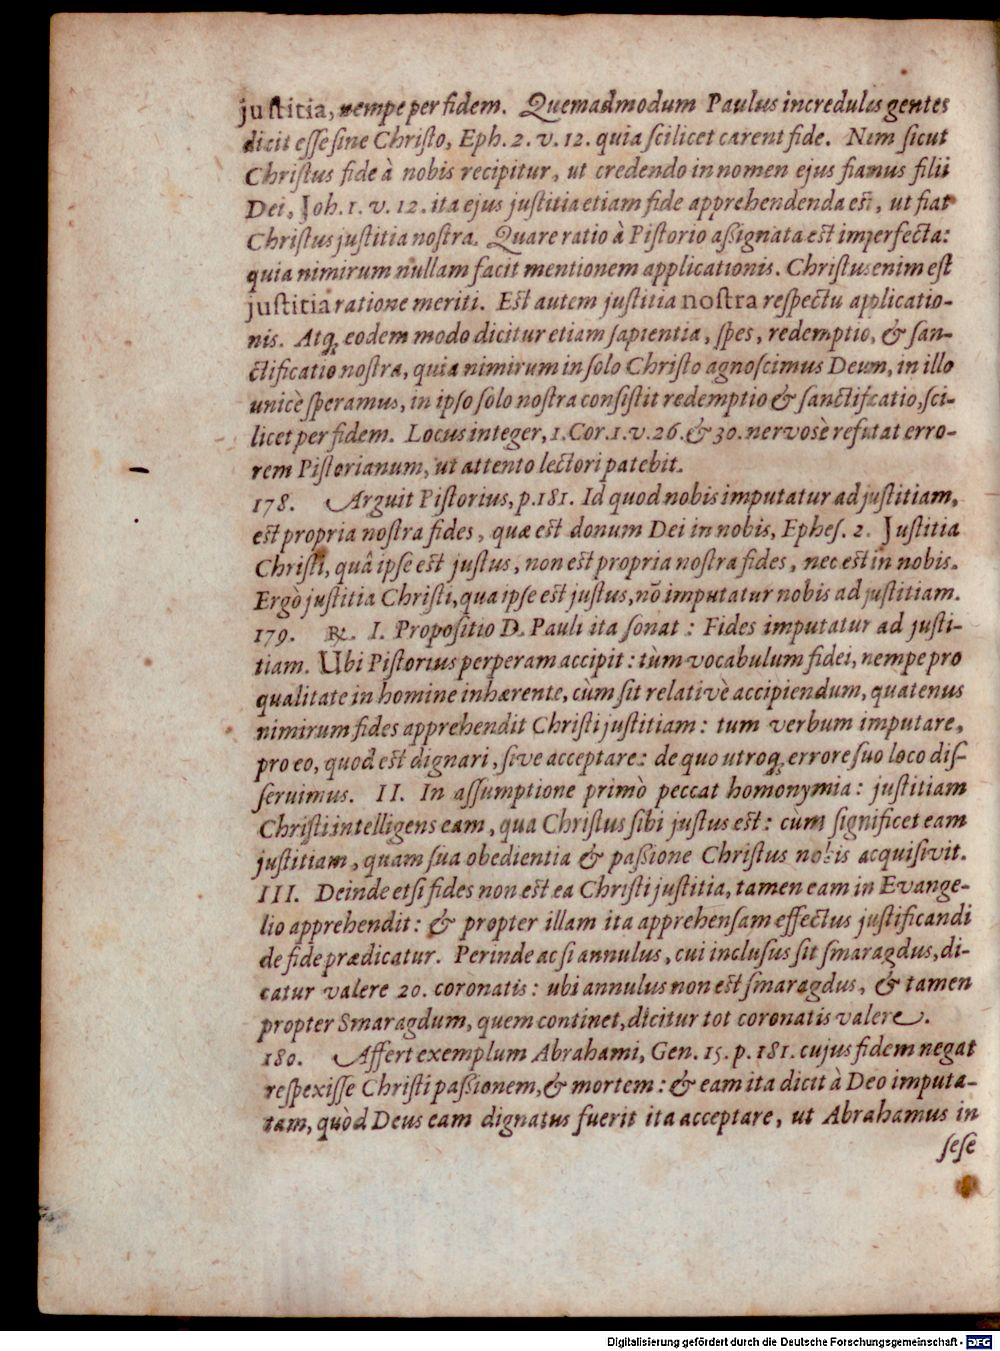 justitia, nempe per fidem. Quemadmodum Paulus incredulos gentes
dicit esse sine Christo, Eph. 2. v. 12. quia scilicet carent fide. Nam sicut
Christus fide à nobis recipitur, ut credendo in nomen ejus fiamus filii
Dei, Joh. 1. v. 12. ita ejus justitia etiam fide apprehendenda est, ut fiat
Christus justitia nostra. Quare ratio à Pistorio aßignata est imperfecta:
quia nimirum nullam facit mentionem applicationis. Christus enim est
justitia ratione meriti. Est autem justitia nostra respectu applicatio-
nis. Atq; eodem modo dicitur etiam sapientia, spes, redemptio, & san-
ctificatio nostra, quia nimirum in solo Christo agnoscimus Deum, in illo
unicè speramus, in ipso solo nostra consistit redemptio & sanctificatio, sci-
licet per fidem. Locus integer, 1. Cor. 1. v. 26. & 30. nervosè refutat erro-
rem Pistorianum, ut attento lectori patebit.
178. Arguit Pistorius, p. 181. Id quod nobis imputatur ad justitiam,
est propria nostra fides, quæ est donum Dei in nobis, Ephes. 2. Justitia
Christi, quâ ipse est justus, non est propria nostra fides, nec est in nobis.
Ergò justitia Christi, qua ipse est justus, nō imputatur nobis ad justitiam.
179. ℞. I. Propositio D. Pauli ita sonat: Fides imputatur ad justi-
tiam. Ubi Pistorius perperam accipit: tùm vocabulum fidei, nempe pro
qualitate in homine inhærente, cùm sit relativè accipiendum, quatenus
nimirum fides apprehendit Christi justitiam: tum verbum imputare,
pro eo, quod est dignari, sive acceptare: de quo utroq; errore suo loco dis-
seruimus. II. In assumptione primò peccat homonymia: justitiam
Christi intelligens eam, qua Christus sibi justus est: cùm significet eam
justitiam, quam sua obedientia & paßione Christus nobis acquisivit.
III. Deinde etsi fides non est ea Christi justitia, tamen eam in Evange-
lio apprehendit: & propter illam ita apprehensam effectus justificandi
de fide prædicatur. Perinde ac si annulus, cui inclusus sit smaragdus, di-
catur valere 20. coronatis: ubi annulus non est smaragdus, & tamen
propter Smaragdum, quem continet, dicitur tot coronatis valere.
180. Affert exemplum Abrahami, Gen. 15. p. 181. cujus fidem negat
respexisse Christi paßionem, & mortem: & eam ita dicit à Deo imputa-
tam, quòd Deus eam dignatus fuerit ita acceptare, ut Abrahamus in
sese
Digitalisierung gefördert durch die Deutsche Forschungsgemeinschaft - DFG